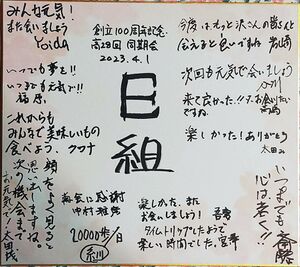 創立100周年記念
高28回 同期会
2023.4.1
E組
みんな元気!
また会いましょう
Yoida
いつも夢を!!
いつまでも元気で!!
福原
これからも
みんなで美味しいもの
食べよう、
顔をよく見ると
思い出しますね
次の機会まで
お元気で! 太田
再会に感謝
中村
20000歩/日
楽しかった、また
お会いしましょう!
タイムトリップしたようで
楽しい時間でした。
今後はもっと沢山の皆さんと
会えると良いですね
次回も元気で会いましょう
来て良かった!!
ですね
楽しかった!ありがとう
太田
いつまでも
心は若く!!